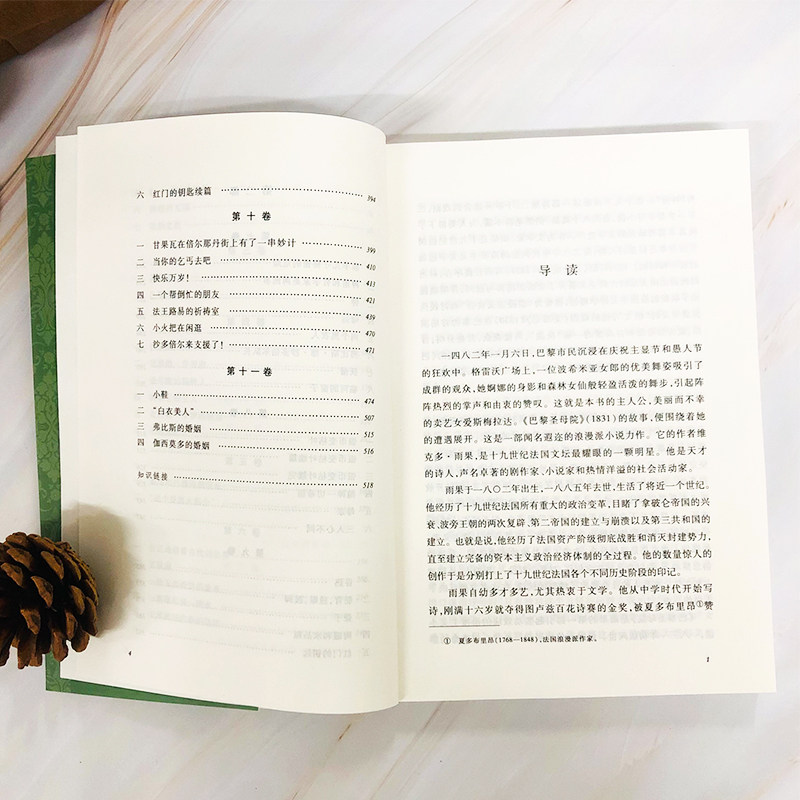 六 红门的钥匙续篇 394
第十卷
一 甘果瓦在倍尔那丹街上有了一串妙计 399
二 当你的乞丐去吧 410
三 快乐万岁！ 413
四 一个帮倒忙的朋友 421
五 法王路易的祈祷室 439
六 小火把在闲逛 470
七 抄多倍尔来支援了！ 471
第十一卷
一 小鞋 474
二 “白衣美人” 507
三 弗比斯的婚姻 515
四 伽西莫多的婚姻 516
知识链接 518
4
导读
一四八二年一月六日，巴黎市民沉浸在庆祝主显节和愚人节
的狂欢中。格雷沃广场上，一位波希米亚女郎的优美舞姿吸引了
成群的观众，她婀娜的身影和森林女仙般轻盈活泼的舞步，引起阵
阵热烈的掌声和由衷的赞叹。这就是本书的主人公，美丽而不幸
的卖艺女爱斯梅拉达。《巴黎圣母院》(1831)的故事，便围绕着她
的遭遇展开。这是一部闻名遐迩的浪漫派小说力作。它的作者维
克多·雨果，是十九世纪法国文坛最耀眼的一颗明星。他是天才
的诗人，声名卓著的剧作家、小说家和热情洋溢的社会活动家。
雨果于一八〇二年出生，一八八五年去世，生活了将近一个世纪。
他经历了十九世纪法国所有重大的政治变革，目睹了拿破仑帝国的兴
衰、波旁王朝的两次复辟、第二帝国的建立与崩溃以及第三共和国的
建立。也就是说，他经历了法国资产阶级彻底战胜和消灭封建势力，
直至建立完备的资本主义政治经济体制的全过程。他的数量惊人的
创作于是分别打上了十九世纪法国各个不同历史阶段的印记。
雨果自幼多才多艺，尤其热衷于文学。他从中学时代开始写
诗，刚满十六岁就夺得图卢兹百花诗赛的金奖，被夏多布里昂①赞
① 夏多布里昂(1768—1848)，法国浪漫派作家。
1